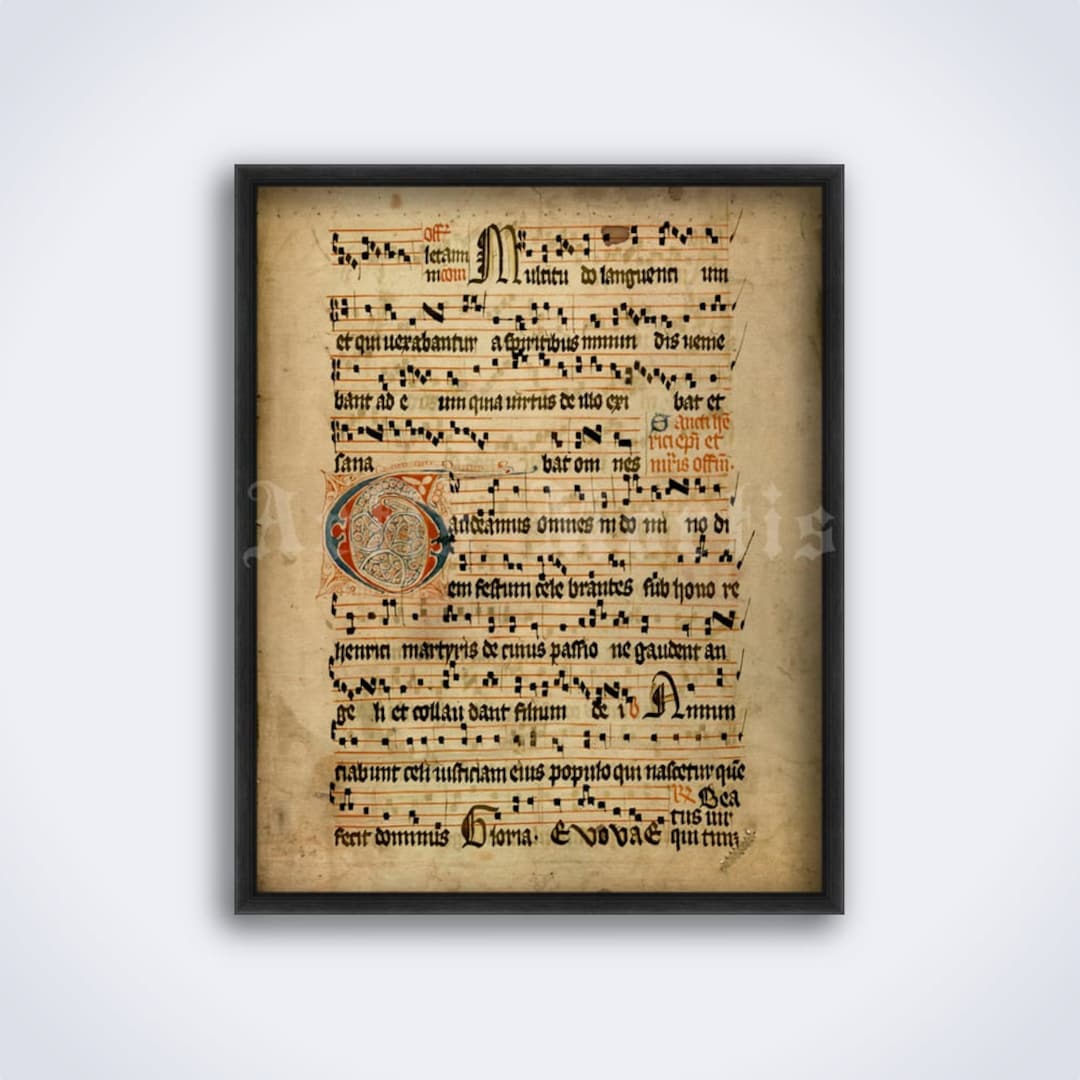 off
letami
ni com Multitu do languenti um
et qui uexabantur a spiritibus inmun dis uenie
bant ad e um quia uirtus de illo exi bat et
sana bat om nes
Sancti he
rici epi et
mris offm.
Gaudeamus omnes in do mi no di
em festum cele brantes sub hono re
henrici martyris de cuius passio ne gaudent an
ge li et collau dant filium de i Annun
ciabunt celi iusticiam eius populo qui nascetur que
fecit dominus Gloria. EVOVAE
Bea
tus uir
qui